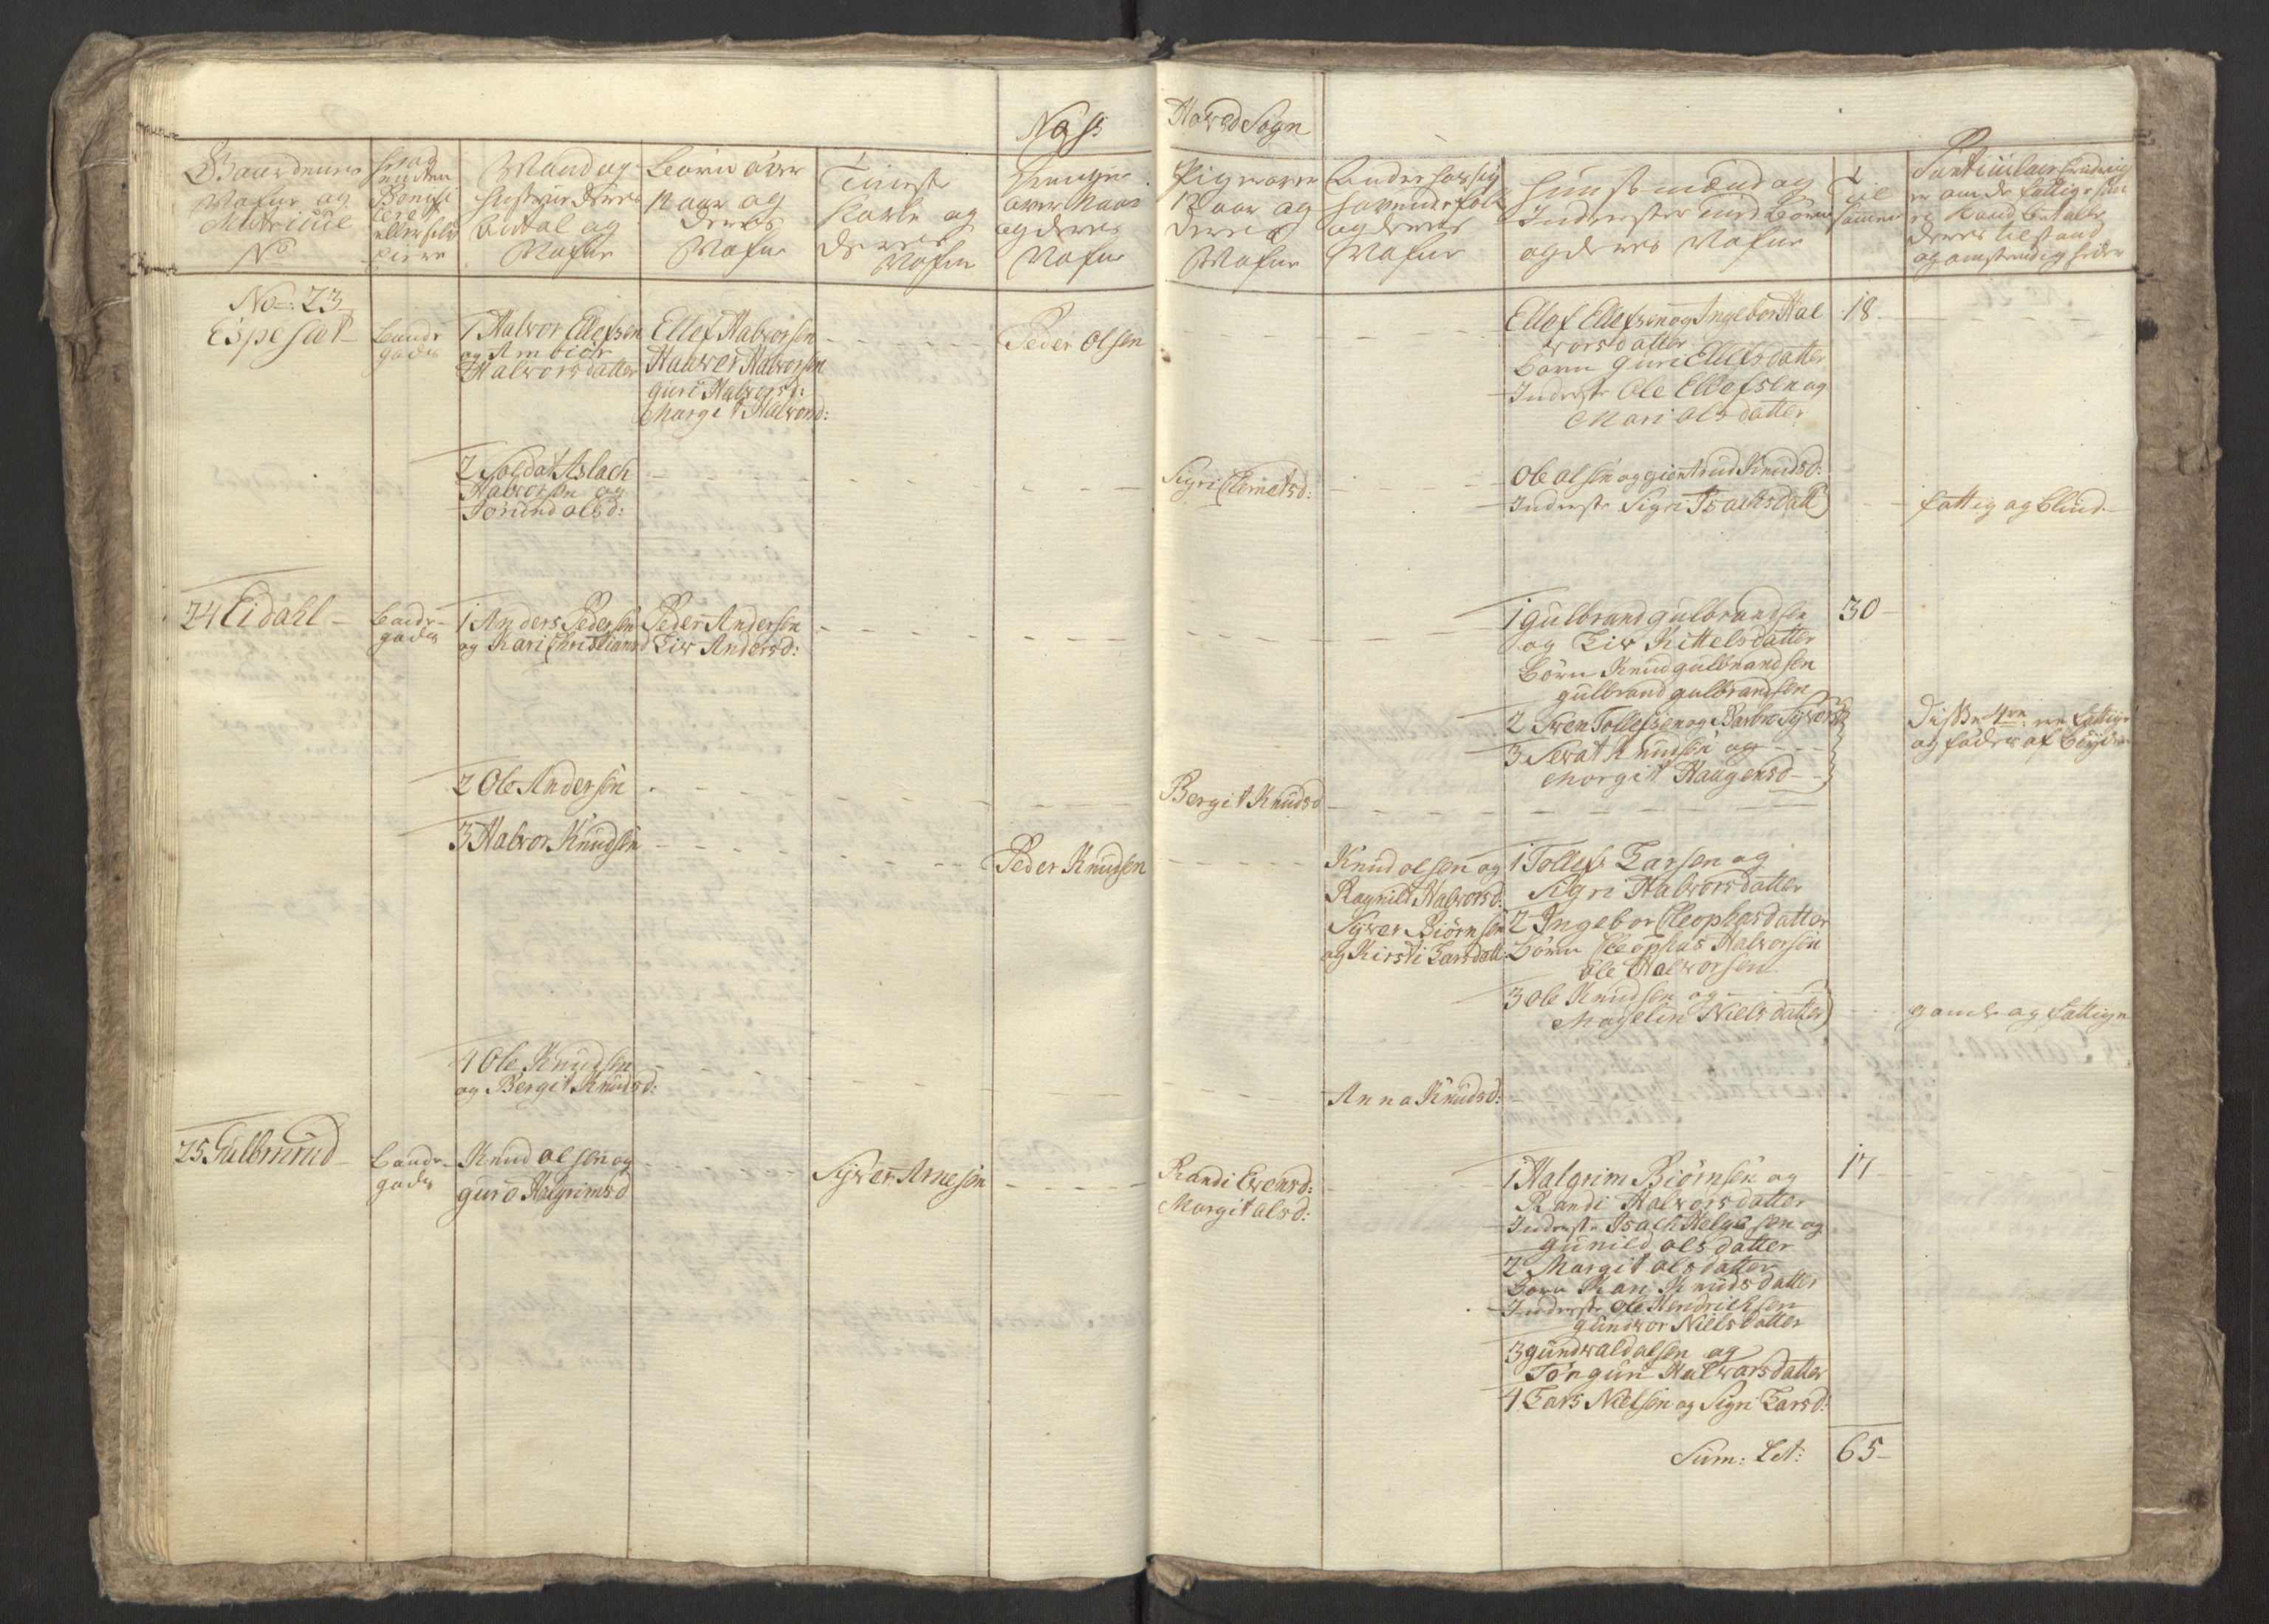 Næss
Hoved Sogn
Gaardenes
Nafne og
Matricul
No
Mand og
Hustrue deres
Antal og
Nafne
Børn over
12 aar og
deres
Nafne
Tieneste
Karle og
deres
Nafne
Drenge
over 12 aar
og deres
Nafne
Piger over
12 aar og
deres
Nafne
og deres
Nafne
Huusmænd og
Inderster med Børn
og deres Nafne
Til
sammen
er om de fattige
deres tilstand
og omstendigheder
No: 23
Espeset
Bonde
godz
1 Halvor Ellefsen
og Ambiør
Halvorsdatter
Ellef Halvorsen
Haawer Halvorsen
Guri Halvorsd:
Margit Halvorsd:
Peder Olsen
Ellef Ellefsen og Ingebor Hal
vorsdatter
Børn Guri Ellefsdatter
Inderste Ole Ellefsen og
Mari Olsdatter
18
2 Soldat Aslach
Halvorsen og
Torund Olsd:
Sigri Clemetsd:
Ole Olsen og Giertrud Knudsd:
Inderste Sigri Isachsdatt
fattig og blind
24 Eidahl
Bonde
godz
1 Anders Pedersen
og Kari Christiansd
Peder Andersen
Liv Andersd:
1 Gulbrand Gulbrandsen
og Liv Kittelsdatter
Børn Knud Gulbrandsen
Gulbrand Gulbrandsen
30
2 Sven Tollefsen og Barbro Syversd
3 Sevat Knudsen og
Margit Haagensd
Disse 4re ere fattige
og födes af Bÿgden
2 Ole Andersen
Bergit Knudsd
3 Halvor Knudsen
Peder Knudsen
Knud Olsen og
Ragnild Halvorsd:
Syver Biørnsen
og Kirsti Larsdatt:
1 Tollef Larsen og
Sigri Halvorsdatter
2 Ingebor Cleophasdatter
Børn Cleophas Halvorsen
Ole Halvorsen
3 Ole Knudsen og
Magelin Nielsdatter
gamle og fattige
4 Ole Knudsen
og Bergit Knudsd:
Anna Knudsd:
25 Gulbrerud
Bonde
godz
Knud Olsen og
Guro Halgrimsd
Syver Arnesen
Randi Evensd:
Margit Olsd:
1 Halgrim Biørnsen og
Randi Halvorsdatter
Inderste Isach Helgesen og
Gunild Olsdatter
2 Margit Olsdatter
Børn Kari Knudsdatter
Inderste Ole Hendrichsen
Gundvor Nielsdatter
3 Gundvald Olsen og
Torgun Halvorsdatter
4 Lars Nielsen og Sigri Larsd:
17
Sum: Let: 65